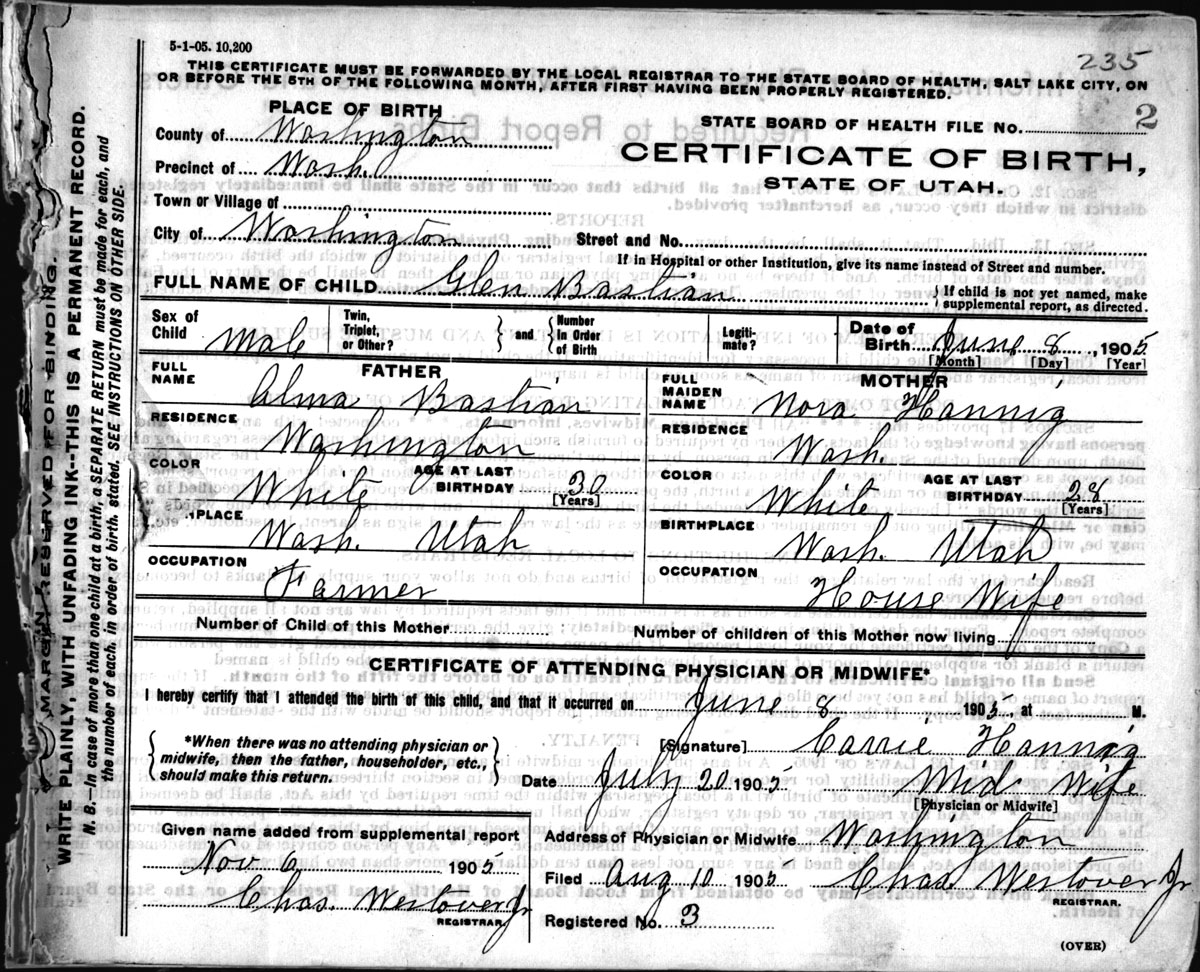 5-1-05. 10,200
235
THIS CERTIFICATE MUST BE FORWARDED BY THE LOCAL REGISTRAR TO THE STATE BOARD OF HEALTH, SALT LAKE CITY, ON
OR BEFORE THE 5TH OF THE FOLLOWING MONTH, AFTER FIRST HAVING BEEN PROPERLY REGISTERED.
PLACE OF BIRTH
STATE BOARD OF HEALTH FILE NO. 2
County of Washington
CERTIFICATE OF BIRTH,
Precinct of Wash.
STATE OF UTAH.
Town or Village of
City of Washington Street and No.
If in Hospital or other Institution, give its name instead of Street and number.
FULL NAME OF CHILD Glen Bastian } If child is not yet named, make
supplemental report, as directed.
Sex of Child Male Twin, Triplet, or Other? } and { Number in Order of Birth Legiti-mate? Date of Birth June 8, 1905
[Month] [Day] [Year]
FATHER MOTHER
FULL NAME Alma Bastian FULL MAIDEN NAME Nora Hannig
RESIDENCE Washington RESIDENCE Wash.
COLOR White AGE AT LAST BIRTHDAY 30 [Years] COLOR White AGE AT LAST BIRTHDAY 28 [Years]
BIRTHPLACE Wash. Utah BIRTHPLACE Wash. Utah
OCCUPATION Farmer OCCUPATION House Wife
Number of Child of this Mother Number of children of this Mother now living
CERTIFICATE OF ATTENDING PHYSICIAN OR MIDWIFE*
I hereby certify that I attended the birth of this child, and that it occurred on June 8 1905, at M.
{ *When there was no attending physician or
midwife, then the father, householder, etc.,
should make this return. }
[Signature] Carrie Hannig
Date July 20 1905. Mid-Wife
[Physician or Midwife]
Given name added from supplemental report
Address of Physician or Midwife Washington
Nov 6 1905
Filed Aug 10 1905 Chas. Westover Jr
REGISTRAR.
Chas. Westover Jr
REGISTRAR.
Registered No. 3
(OVER)
MARGIN RESERVED FOR BINDING.
WRITE PLAINLY, WITH UNFADING INK--THIS IS A PERMANENT RECORD.
N. B.—In case of more than one child at a birth, a SEPARATE RETURN must be made for each, and
the number of each, in order of birth, stated. SEE INSTRUCTIONS ON OTHER SIDE.